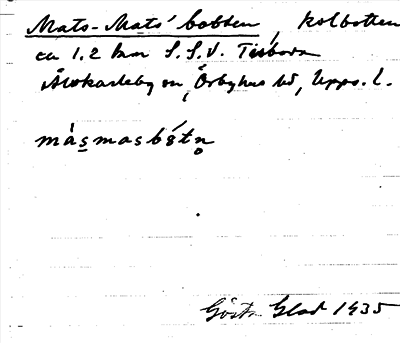 Mats-Mats' botten, kolbotten
ca 1.2 km S.S.V. Tisboda
Älvkarleby sn, Örbyhus hd, Upps. l.
måsmasbótn
Gösta Glad 1935